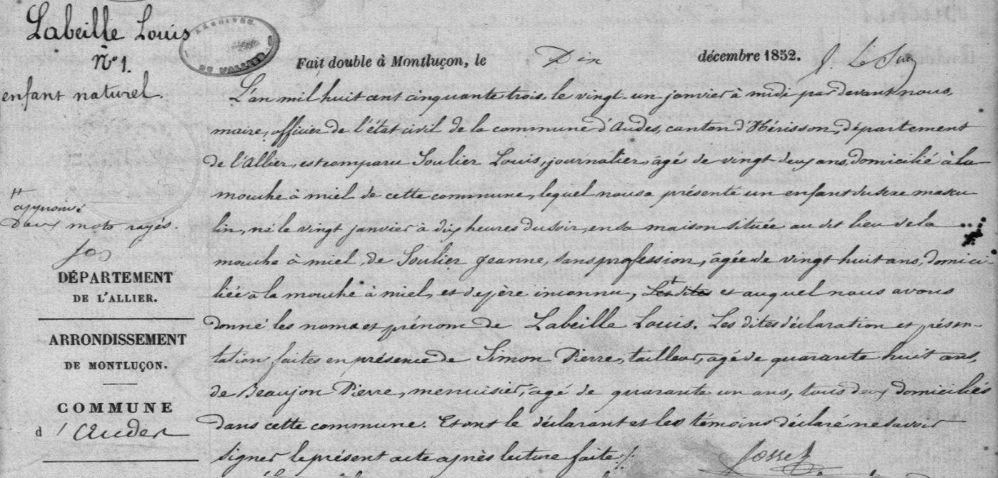 Labeille Louis
N° 1.
enfant naturel.
approuvé
Deux mots rayés.
DÉPARTEMENT
DE L'ALLIER.
ARRONDISSEMENT
DE MONTLUÇON.
COMMUNE
d'Audes
ARCHIVES
DE L'ALLIER
Fait double à Montluçon, le Dix décembre 1852.
L'an mil huit cent cinquante trois, le vingt-un janvier à midi par devant nous
maire, officier de l'état civil de la commune d'Audes, canton d'Hérisson, département
de l'Allier, est comparu Soulier Louis, journalier, agé de vingt deux ans, domicilié à la
mouche à miel de cette commune, lequel nous a présenté un enfant du sexe mascu
lin, né le vingt janvier à dix heures du soir, en sa maison située au dit lieu de la
mouche à miel, de Soulier Jeanne, sans profession, agée de vingt huit ans, domici
liée à la mouche à miel, et de père inconnu, et auquel nous avons
donné les noms et prénom de Labeille Louis. Les dites déclaration et présen
tation faites en présence de Simon Pierre, tailleur, agé de quarante huit ans,
de Beaujon Pierre, menuisier, agé de quarante un ans, tous deux domiciliés
dans cette commune. Et ont le déclarant et les témoins déclaré ne savoir
signer le présent acte après lecture faite ./.